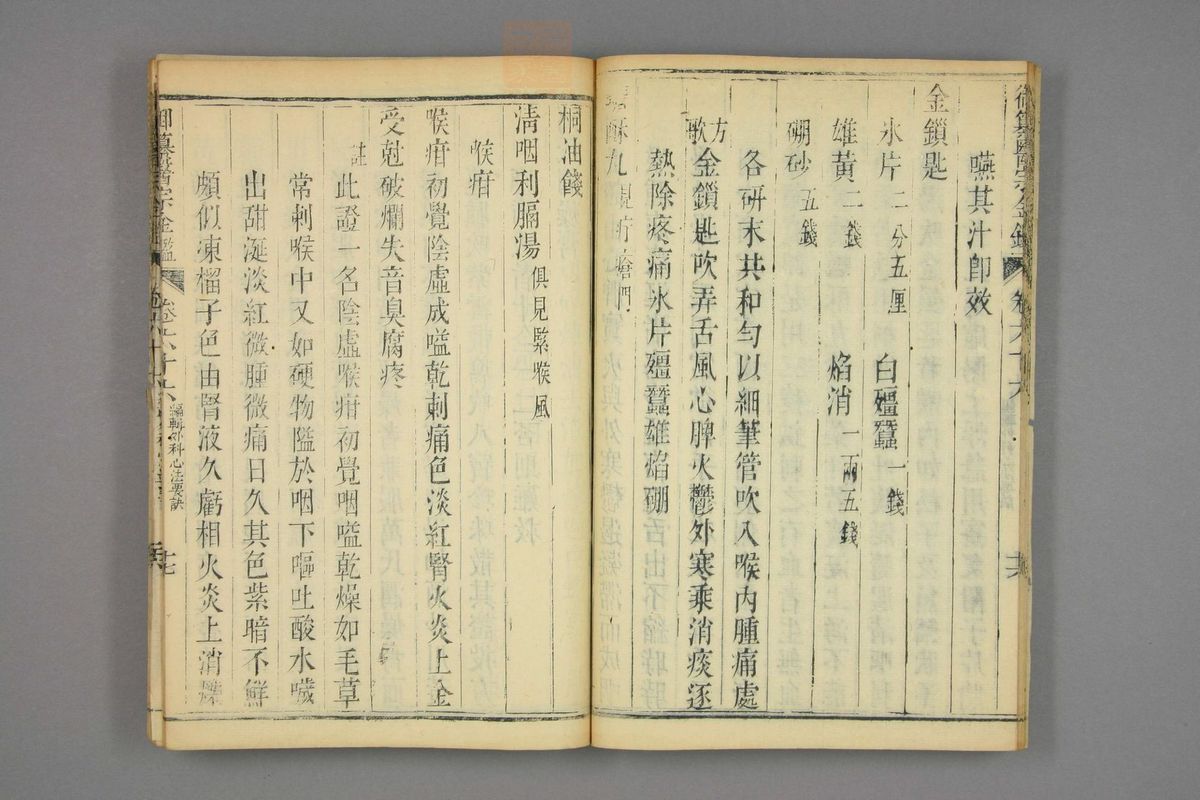 嚥其汁卽效
金鎖匙
氷片二分五厘 白殭蠶一錢
雄黃二錢 焰消一兩五錢
硼砂五錢
各研末共和勻以細筆管吹入喉內腫痛處
方歌金鎖匙吹弄舌風心脾火鬱外寒乘消痰逐
熱除疼痛氷片殭蠶雄焰硼
酥丸見疔瘡門
桐油餞
淸咽利膈湯俱見緊喉風
喉疳
喉疳初覺陰虛成嗌乾刺痛色淡紅腎火炎上金
受尅破爛失音臭腐疼
註此證一名陰虛喉疳初覺咽嗌乾燥如毛草
常刺喉中又如硬物隘於咽下嘔吐酸水噦
出甜涎淡紅微腫微痛日久其色紫暗不鮮
頗似凍榴子色由腎液久虧相火炎上消爍
御纂醫宗金鑑 卷六十六 編輯外科心法要訣 十七